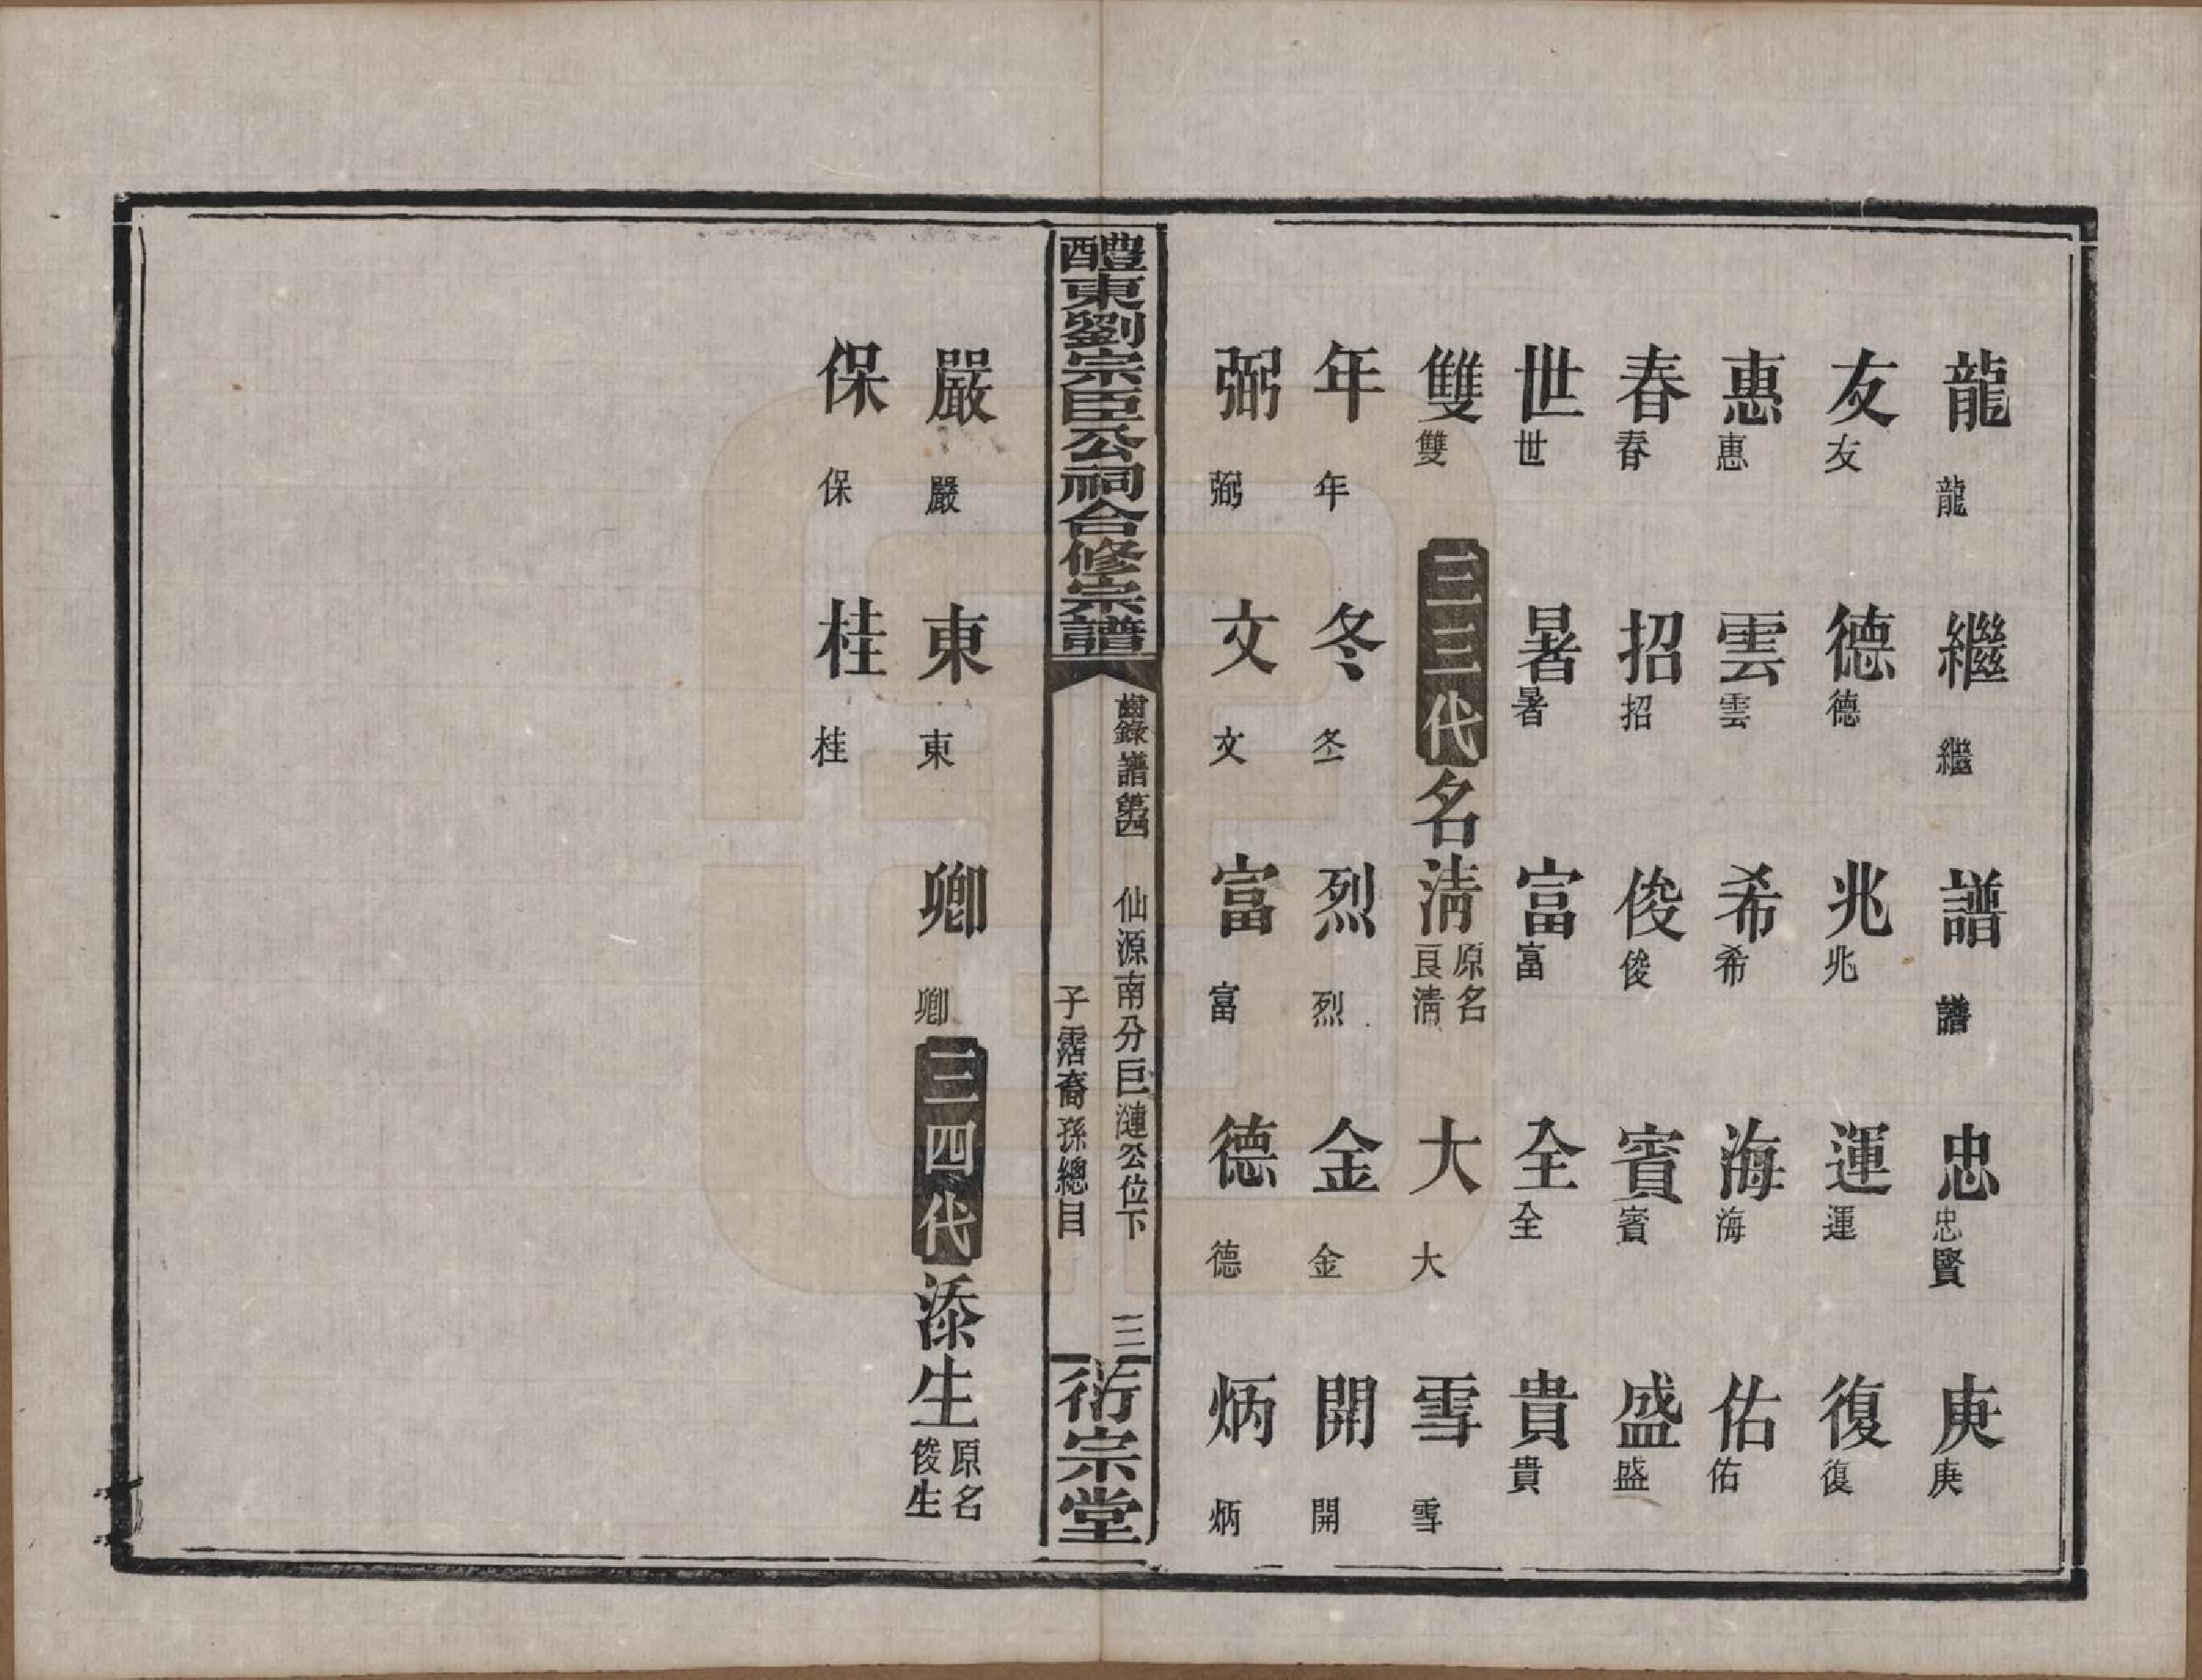 龍龍繼繼譜譜忠忠賢庚庚
友友德德兆兆運運復復
惠惠雲雲希希海海佑佑
春春招招俊俊賓賓盛盛
世世暑暑富富全全貴貴
雙雙三三代名淸原名良淸大大雪雪
年年冬冬烈烈金金開開
弼弼文文富富德德炳炳
醴東劉宗臣公祠合修宗譜
齒錄譜第四 仙源南分巨漣公位下
子霑裔孫總目
三
衍宗堂
嚴嚴東東卿卿三四代添生原名俊生
保保桂桂